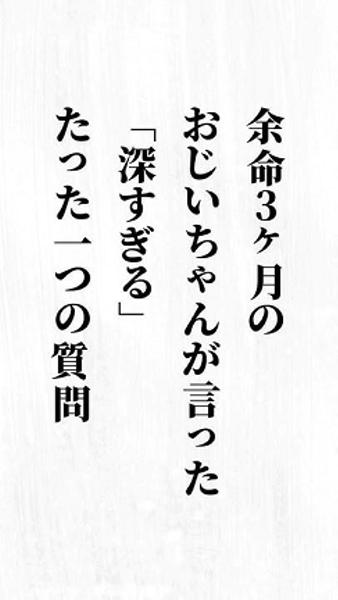 余命3ヶ月の
おじいちゃんが言った
「深すぎる」
たった一つの質問